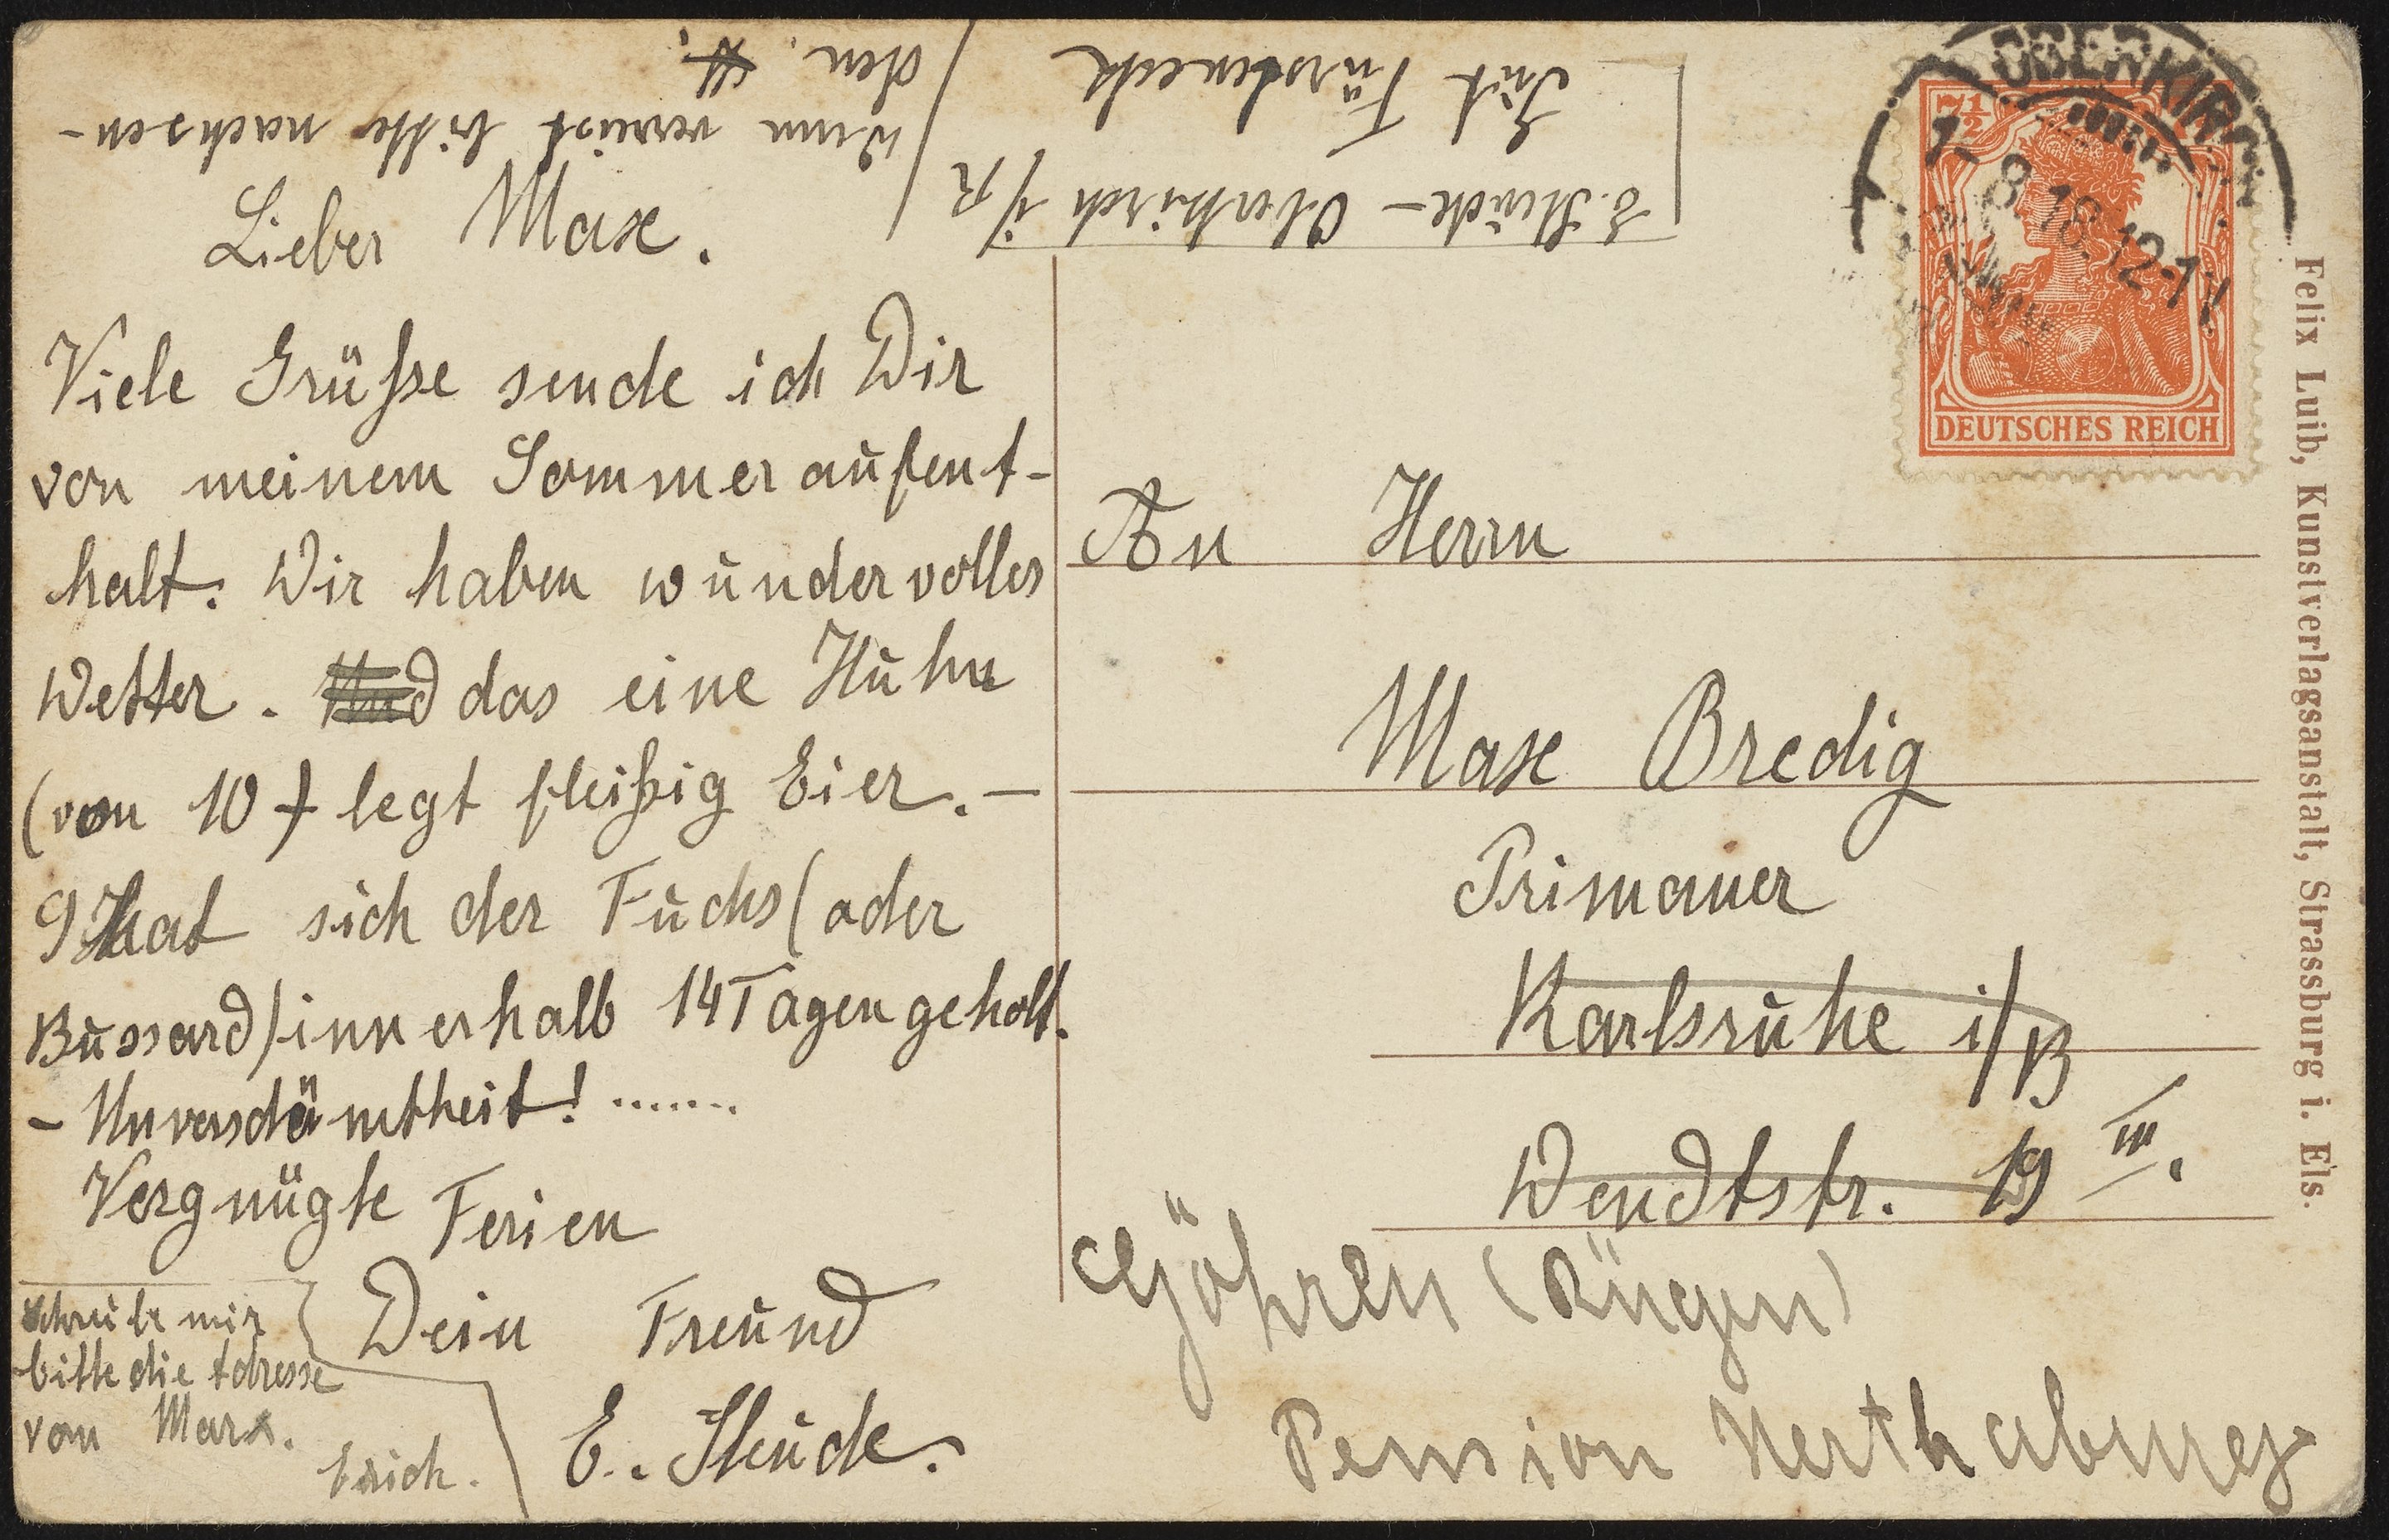 Lieber Max.
Viele Grüsse sende ich Dir
von meinem Sommeraufent-
halt. Wir haben wundervolles
Wetter. das eine Huhn
(von 10) legt fleißig Eier. –
9 hat sich der Fuchs (oder
Bussard) innerhalb 14 Tagen geholt.
– Unverschämtheit! .......
Vergnügte Ferien
Dein Freund
E. Steude.
Schreibe mir
bitte die Adresse
von Marx.
Erich.
E. Steude – Oberkirch i/R
Gut Fürsteneck
Wenn verreist bitte nachsen-
den.
OBERKIRCH
7. 8 18. 12-1
7½
DEUTSCHES REICH
An Herrn
Max Bredig
Primaner
Karlsruhe i/B
Wendtstr. 19 III.
Göhren (Rügen)
Pension Herthaburg
Felix Luib, Kunstverlagsanstalt, Strassburg i. Els.